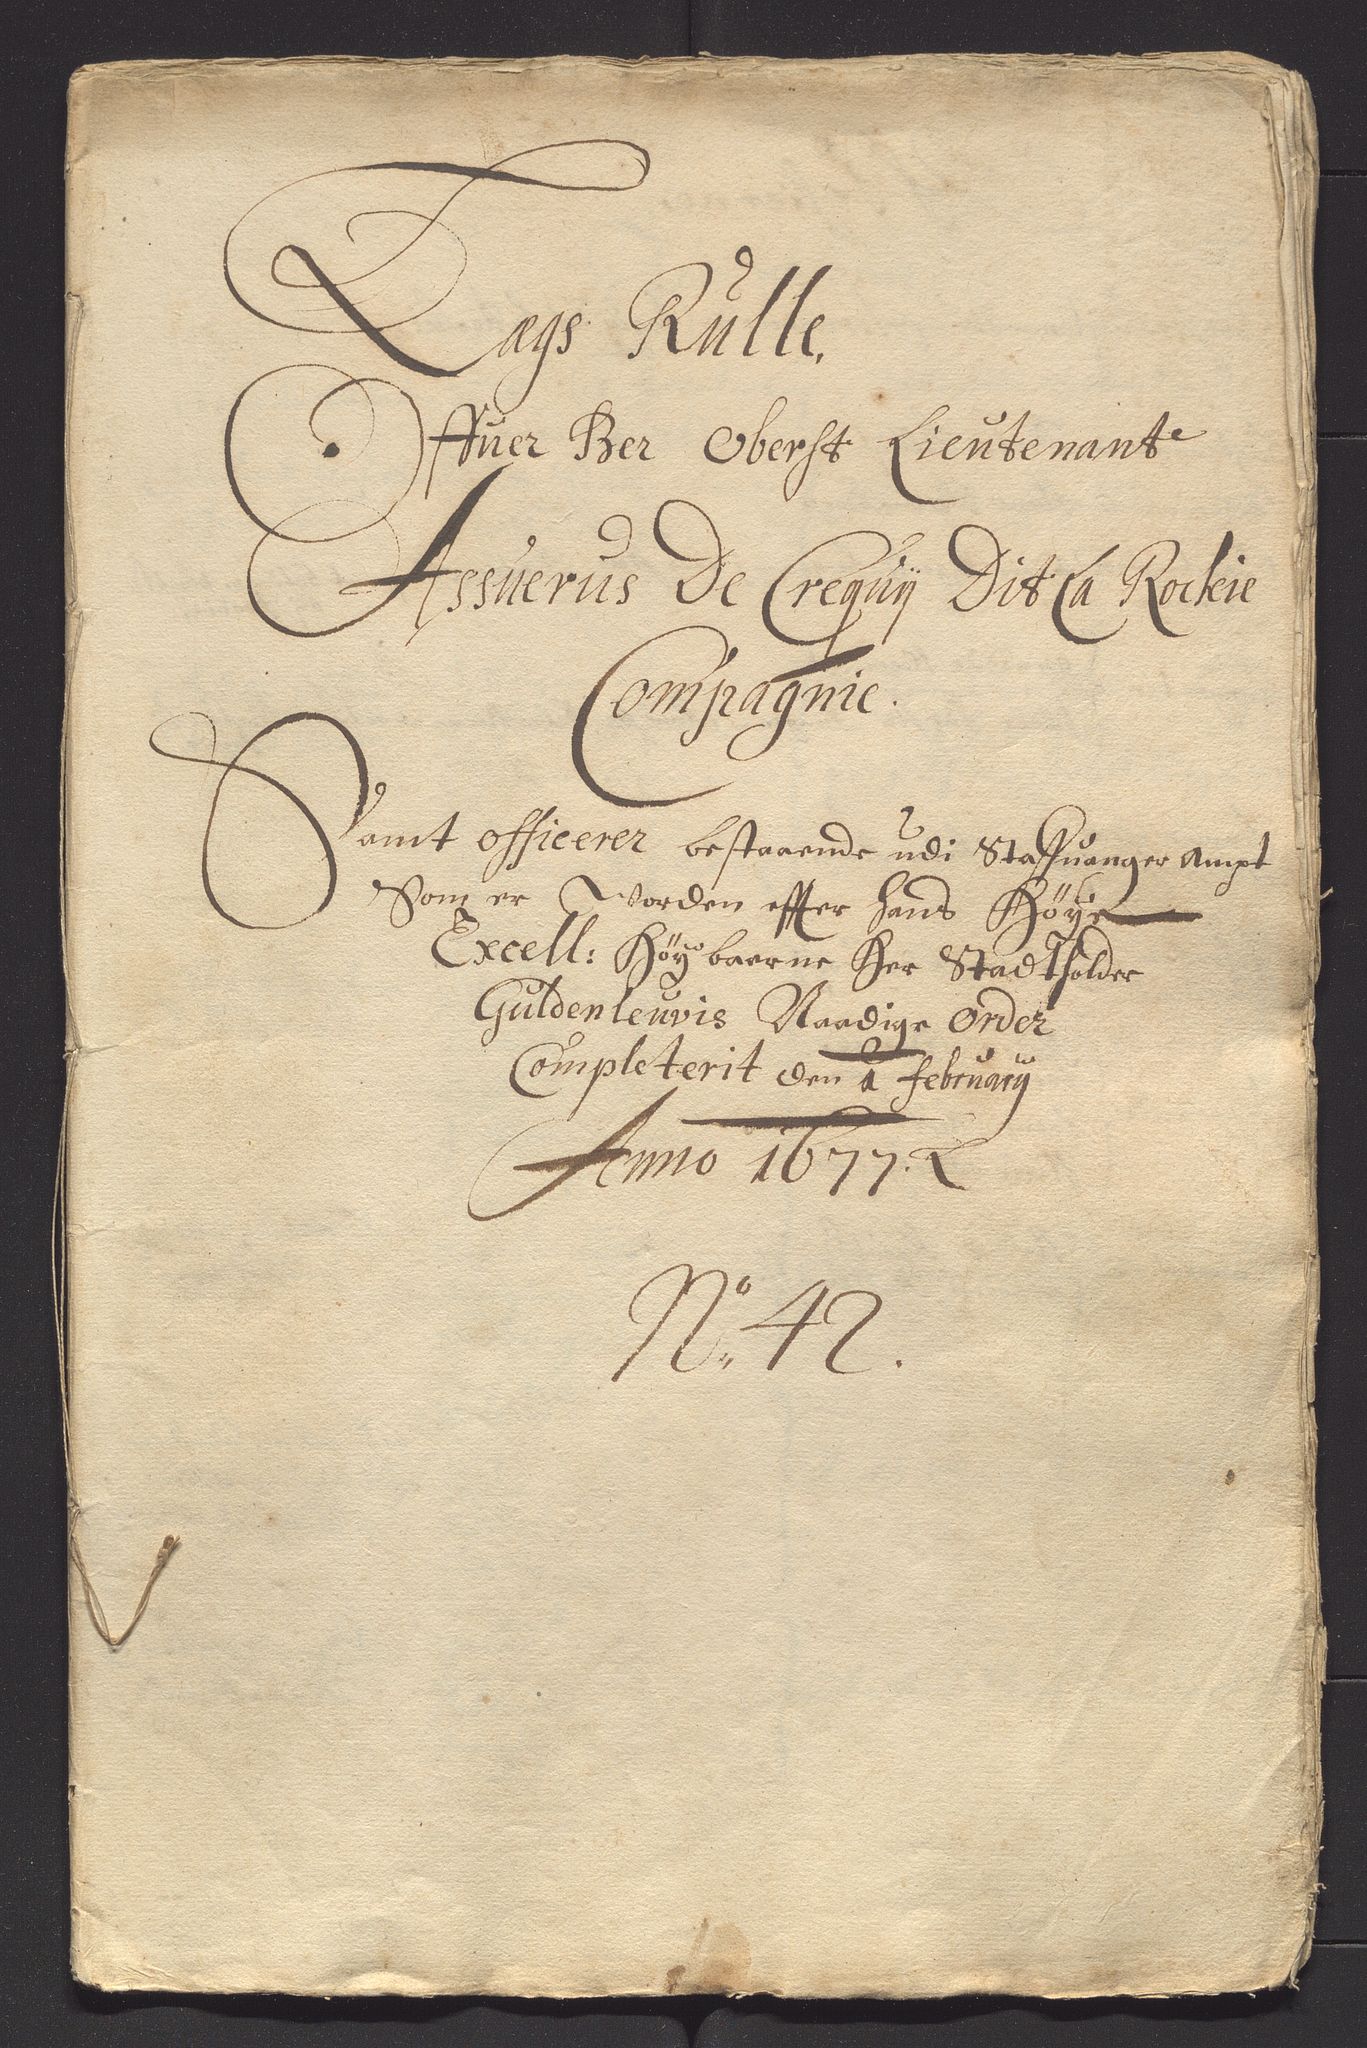 Lægs Rulle,
Offuer Her Oberst Lieutenant
Assuerus De Crequij Dit La Rockie
Compagnie.
Samt officerer bestaaende udi Staffuanger Ampt
Som er Worden effter hans Höÿe
Excell: Höÿbaarne Her Stadtholder
Guldenleuvis Naadige Order
Completerit den 1 february
Anno 1677.
No. 42.